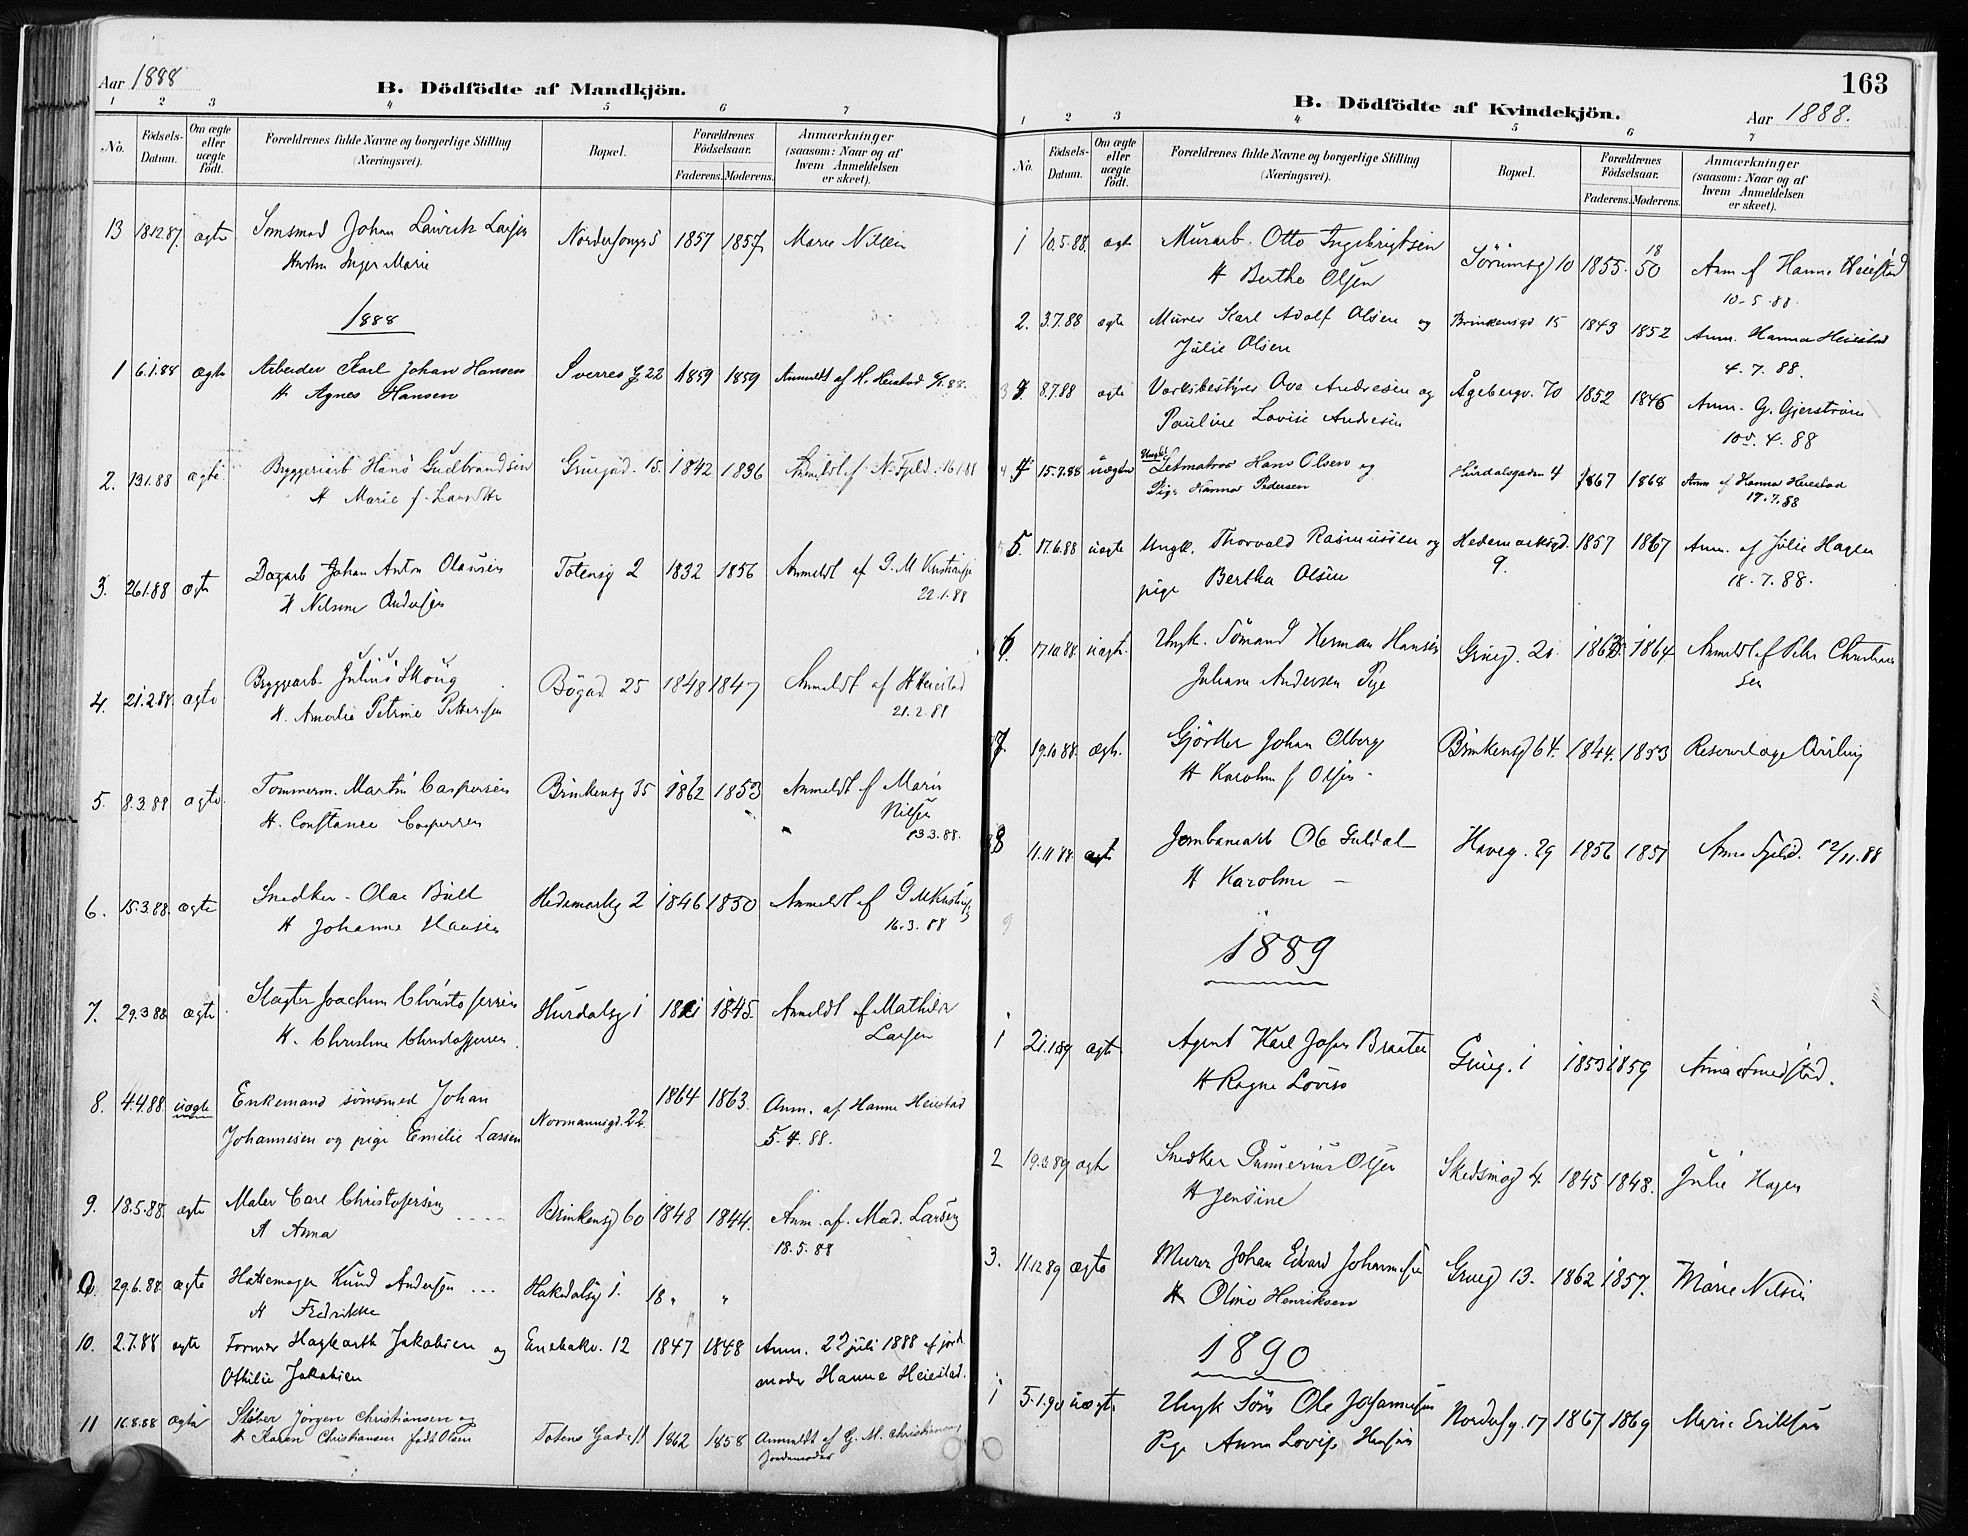 Aar 1888
B. Dödfödte af Mandkjön.
1 2 3 4 5 6 7
No. Födsels-Datum. Om ægte eller uægte födt. Forældrenes fulde Navne og borgerlige Stilling (Næringsvei). Bopæl. Forældrenes Födselsaar. Faderens. Moderens. Anmærkninger (saasom: Naar og af hvem Anmeldelsen er skeet).
13 18.12.87. ægte Johan Larsen 1857 1857 Marie Nilsen
Hustru Inger Marie
1888
1 6.1.88 ægte Arbeider Karl Johan Hansen Sverres g 22 1859 1859 Anmeldt af H. Heiestad
H Agnes Hansen
2. 13.1.88 ægte Bryggeriarb Hans Gudbrandsen Gruegad. 15. 1842 1836 Anmeldt af N. Fjeld. 16.1.88
H Marie f.
3. 26.1.88 ægte Dagarb Johan Anton Olausen Totensg 2 1832 1856 Anmeldt af G. M
H Nilsine Andersen 22.1.88
4. 21.2.88. ægte Bryggarb Julius Skoug Bögad 25 1848 1847 Anmeldt af H Heiestad
H. Amalie Petrine Pettersen 21.2.88
5. 8.3.88 ægte. Tömmerm. Martin Caspersen Brinkensg 35 1862 1853 Anmeldt af Marie
H. Constance Caspersen Nilsen
13.3.88.
6. 15.3.88. ægte Snedker Olae Bull Hedemarksg 2 1846 1850 Anmeldt af G M
H Johanne Hansen 16.3.88
7. 29.3.88 ægte. Slagter Joachim Christofersen Hurdalsg 1 1845. Anmeldt af Mathilde
H. Christine Christoffersen. Larsen
8. 4.4.88. uægte Enkemand sömsmed Johan Normannsgd. 22. 1864 1863. Anm. af Hanne Heiestad
Johannesen og pige Emilie Larsen 5.4.88.
9. 18.5.88. ægte Maler Carl Christofersen Brinkensg 60 1848 1844. Anm. af. Mad. Larsen
H Anna 18.5.88
29.6.88. ægte Hattemager Knud Andersen Hakedalsg 1. 18 " "
H Fredrikke
10. 2.7.88 ægte Former Hagbarth Jakobsen og Enebakv. 12 1847 1848 Anm. 22 juli 1888 af jord
Othilie Jakobsen moder Hanne Heiestad.
11 16.8.88 ægte Stöber Jörgen Christiansen og Totens Gade 11 1862 1858 Anmeldt af G. M. Christiansen
H Karen Christiansen födt Olsen Jordemoder
163
B. Dödfödte af Kvindekjön.
Aar 1888.
1 2 3 4 5 6 7
No. Födsels-Datum. Om ægte eller uægte födt. Forældrenes fulde Navne og borgerlige Stilling (Næringsvei). Bopæl. Forældrenes Födselsaar. Faderens. Moderens. Anmærkninger (saasom: Naar og af hvem Anmeldelsen er skeet).
1 10.5.88. ægte Murarb. Otto Ingebrigtsen Sörumsg 10 1855. 1850 Anm af Hanne Heiestad
H Berthe Olsen 10-5.88.
2. 3.7.88 ægte Murer Karl Adolf Olsen og Brinkensgd 15 1843 1852 Anm. Hanna Heiestad
Julie Olsen 4.7.88.
3 8.7.88 ægte Værksbestyrer Ove Andresen og Ågebergv. 70 1852 1846 Anm. G. Gjerström
Pauline Lovise Andresen 88
4 15.7.88 uægte Ungk. Letmatros Hans Olsen og Hurdalsgaden 4 1867 1868 Anm af Hanna Heiestad
Pige Hanna Pedersen 17.7.88
5. 17.6.88 uægte Ungk. Thorvald Rasmussen og Hedemarksgd. 9. 1857 1867 Anm. af Julie Hagen
pige Bertha Olsen 18.7.88.
6. 17.10.88. uægte. Ungk. Sömand Herman Hansen Grueg. 21. 1864 Anmeldt af Christian
Juliane Andersen Pige sen
7. 19.10.88. ægte. Gjörtler Johan Olberg Brinkensg 64. 1844. 1853 Reservelæge
H Karoline f Olsen
8 11.11.88. ægte Jernbanearb Ole Guldal Haveg. 29 1856 1851 Fjeld. 12/11.88
H Karoline
9
1889
1 21.1.89 ægte Agent Karl Braaten Grueg. 1 1853 1859
H Ragna Lovise
2 19.3.89 ægte Snedker Gunerius Olsen Skedsmog 4. 1845 1848. Julie Hagen
H Jensine
3. 11.12.89 ægte Murer Johan Edvard Johannesen Grueg 13. 1862 1857. Marie Nilsen
H Oline Henriksen
1890
1 5.1.90 uægte Ungk Ole Johannesen 17 1867 1869 Marie Eriksen
Pige Anna Lovise Hansen